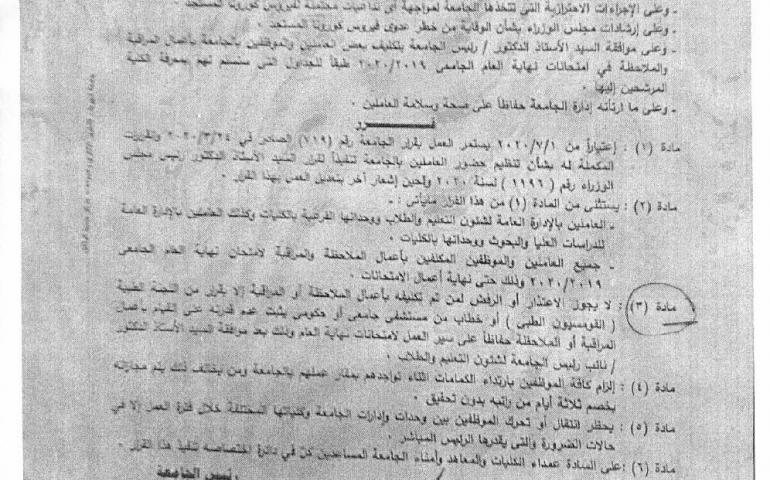 ـ وعلى الإجراءات الاحترازية التي تتخذها الجامعة لمواجهة أى تداعيات محتملة لفيروس كورونا المستجد .
ـ وعلى إرشادات مجلس الوزراء بشأن الوقاية من خطر عدوى فيروس كورونا المستجد .
ـ وعلى موافقة السيد الأستاذ الدكتور / رئيس الجامعة بتكليف بعض العاملين والموظفين بالجامعة بأعمال المراقبة
والملاحظة في امتحانات نهاية العام الجامعى ٢٠٢٠/٢٠١٩ طبقاً للجداول التى ستسلم لهم بمعرفة الكلية
المرشحين إليها .
ـ وعلى ما ارتأته إدارة الجامعة حفاظاً على صحة وسلامة العاملين .
قــــــرر
مادة (١) : إعتباراً من ٢٠٢٠/٧/١ يستمر العمل بقرار الجامعة رقم (٧١٩) الصادر في ٢٠٢٠/٣/٢٤ والقرارات
المكملة له بشأن تنظيم حضور العاملين بالجامعة تنفيذاً لقرار السيد الأستاذ الدكتور رئيس مجلس
الوزراء رقم (١١٩٦) لسنة ٢٠٢٠ ولحين إشعار آخر بتعديل العمل بهذا القرار .
مادة (٢) : يستثنى من المادة (١) من هذا القرار مايأتى : ـ
ـ العاملين بالإدارة العامة لشئون التعليم والطلاب ووحداتها الفرعية بالكليات وكذلك العاملين بالإدارة العامة
للدراسات العليا والبحوث ووحداتها بالكليات .
ـ جميع العاملين والموظفين المكلفين بأعمال الملاحظة والمراقبة لامتحان نهاية العام الجامعى
٢٠٢٠/٢٠١٩ وذلك حتى نهاية أعمال الامتحانات .
مادة (٣) : لا يجوز الاعتذار أو الرفض لمن تم تكليفه بأعمال الملاحظة أو المراقبة إلا بقرار من اللجنة الطبية
( القومسيون الطبى ) أو خطاب من مستشفى جامعى أو حكومى يثبت عدم قدرته على القيام بأعمال
المراقبة أو الملاحظة حفاظاً على سير العمل لامتحانات نهاية العام وذلك بعد موافقة السيد الأستاذ الدكتور
/ نائب رئيس الجامعة لشئون التعليم والطلاب .
مادة (٤) : إلزام كافة الموظفين بارتداء الكمامات اثناء تواجدهم بمقار عملهم بالجامعة ومن يخالف ذلك يتم مجازاته
بخصم ثلاثة أيام من راتبه بدون تحقيق .
مادة (٥) : يحظر انتقال أو تحرك الموظفين بين وحدات وإدارات الجامعة وكلياتها المختلفة خلال فترة العمل إلا في
حالات الضرورة والتى يقدرها الرئيس المباشر .
مادة (٦) : على السادة عمداء الكليات والمعاهد وأمناء الجامعة المساعدين كل في دائرة إختصاصه تنفيذ هذا القرار .
رئيس الجامعة